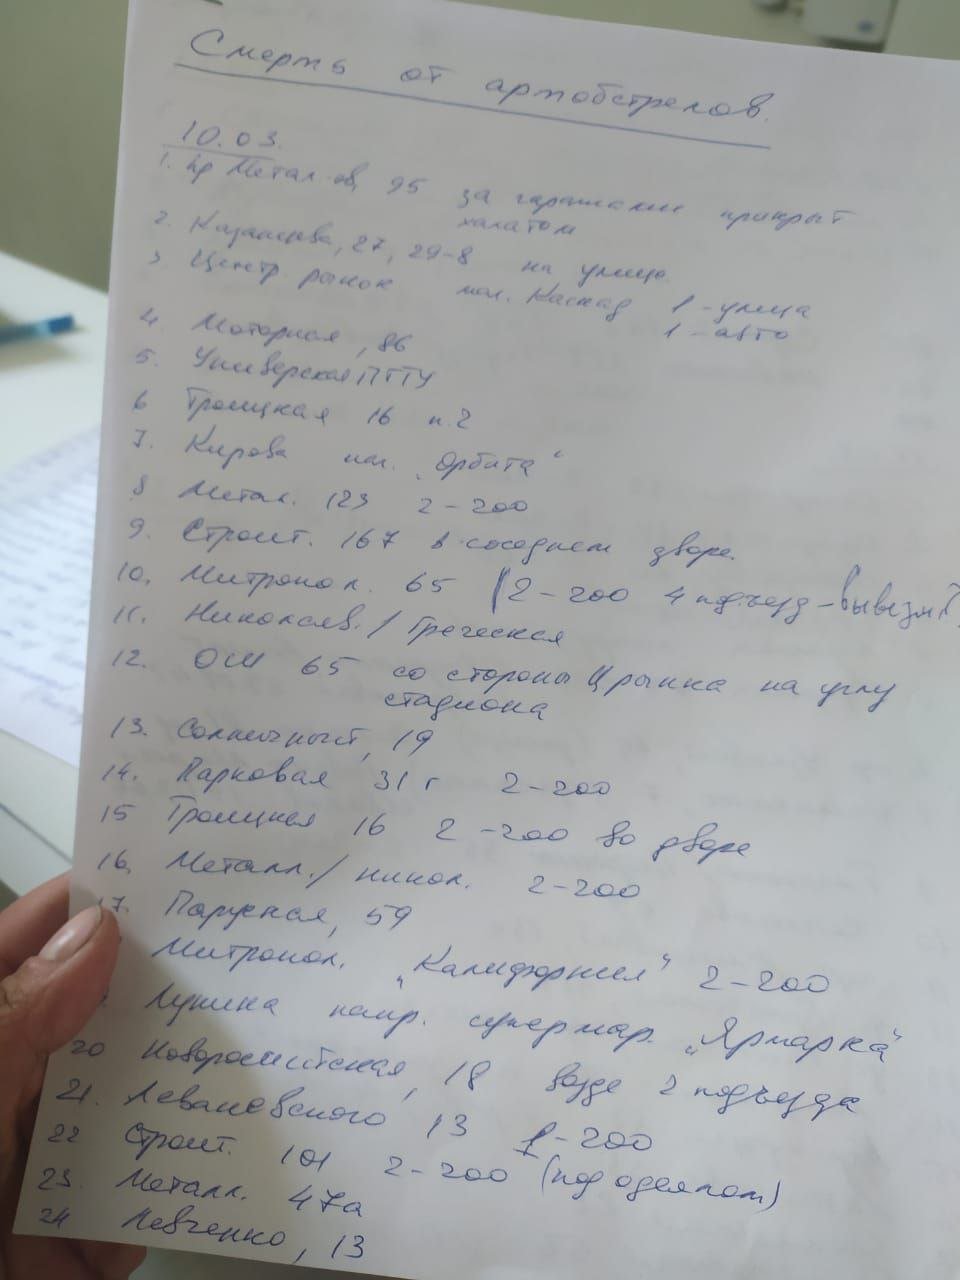 Смерть от артобстрелов.
10.03.
1. пр Метал-ов, 95 за гаражами прикрыт
халатом
2. Казанцева, 27, 29-8 на улице
3 Центр. рынок маг. Каскад 1 - улица
1 - авто
4. Моторная, 86
5. Универская ПГТУ
6 Троицкая 16 п. 2
7. Кирова маг. „Орбита“
8 Метал. 123 2-200
9. Строит. 167 в соседнем дворе.
10. Митропол. 65 (2-200 4 подъезд-вывезли?)
11. Николаев. / Греческая
12. ОШ 65 со стороны Ц рынка на углу
стадиона
13. Солнечный, 19
14. Парковая 31 г 2-200
15 Троицкая 16 2-200 во дворе
16. Металл./никол. 2-200
17. Парусная, 59
Митропол. „Калифорния“ 2-200
Лунина напр. супермар. „Ярмарка“
20 Новороссийская, 18 возле 2 подъезда
21. Леваневского 13 1-200
22 Строит. 101 2-200 (под одеялом)
23. Металл. 47а
24 Шевченко, 13